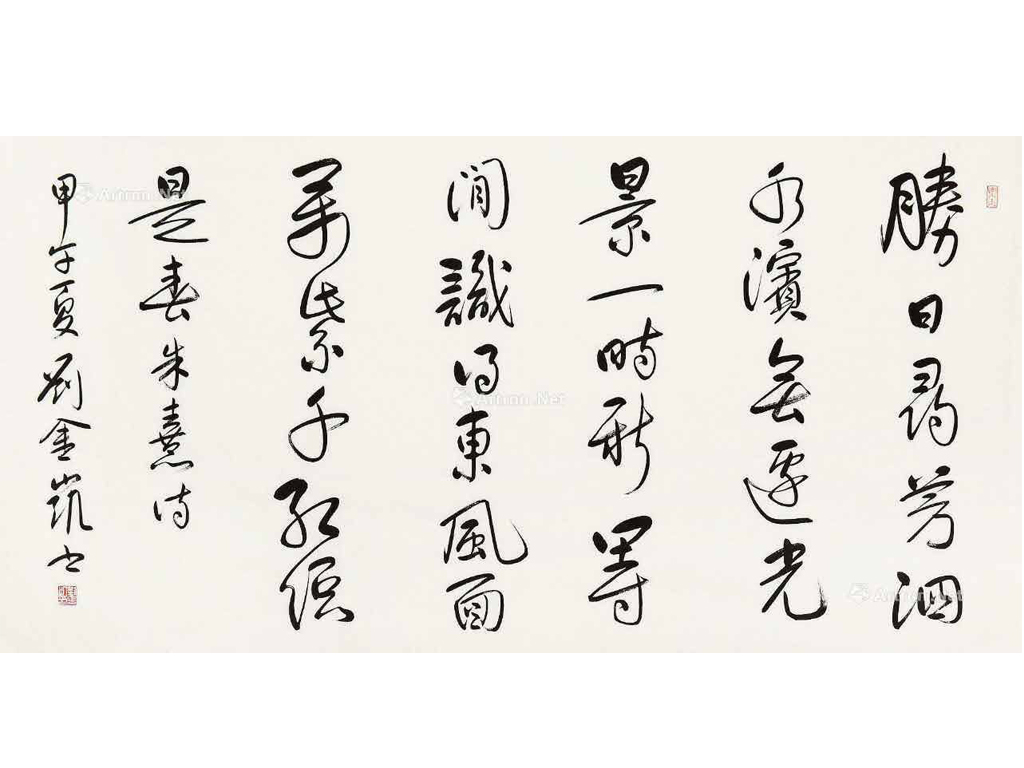 勝日尋芳泗
水濱無邊光
景一時新等
閒識得東風面
萬紫千紅總
是春朱熹詩
甲午夏劉金凱書
Artron.Net
Artron.Net
Artron.Net